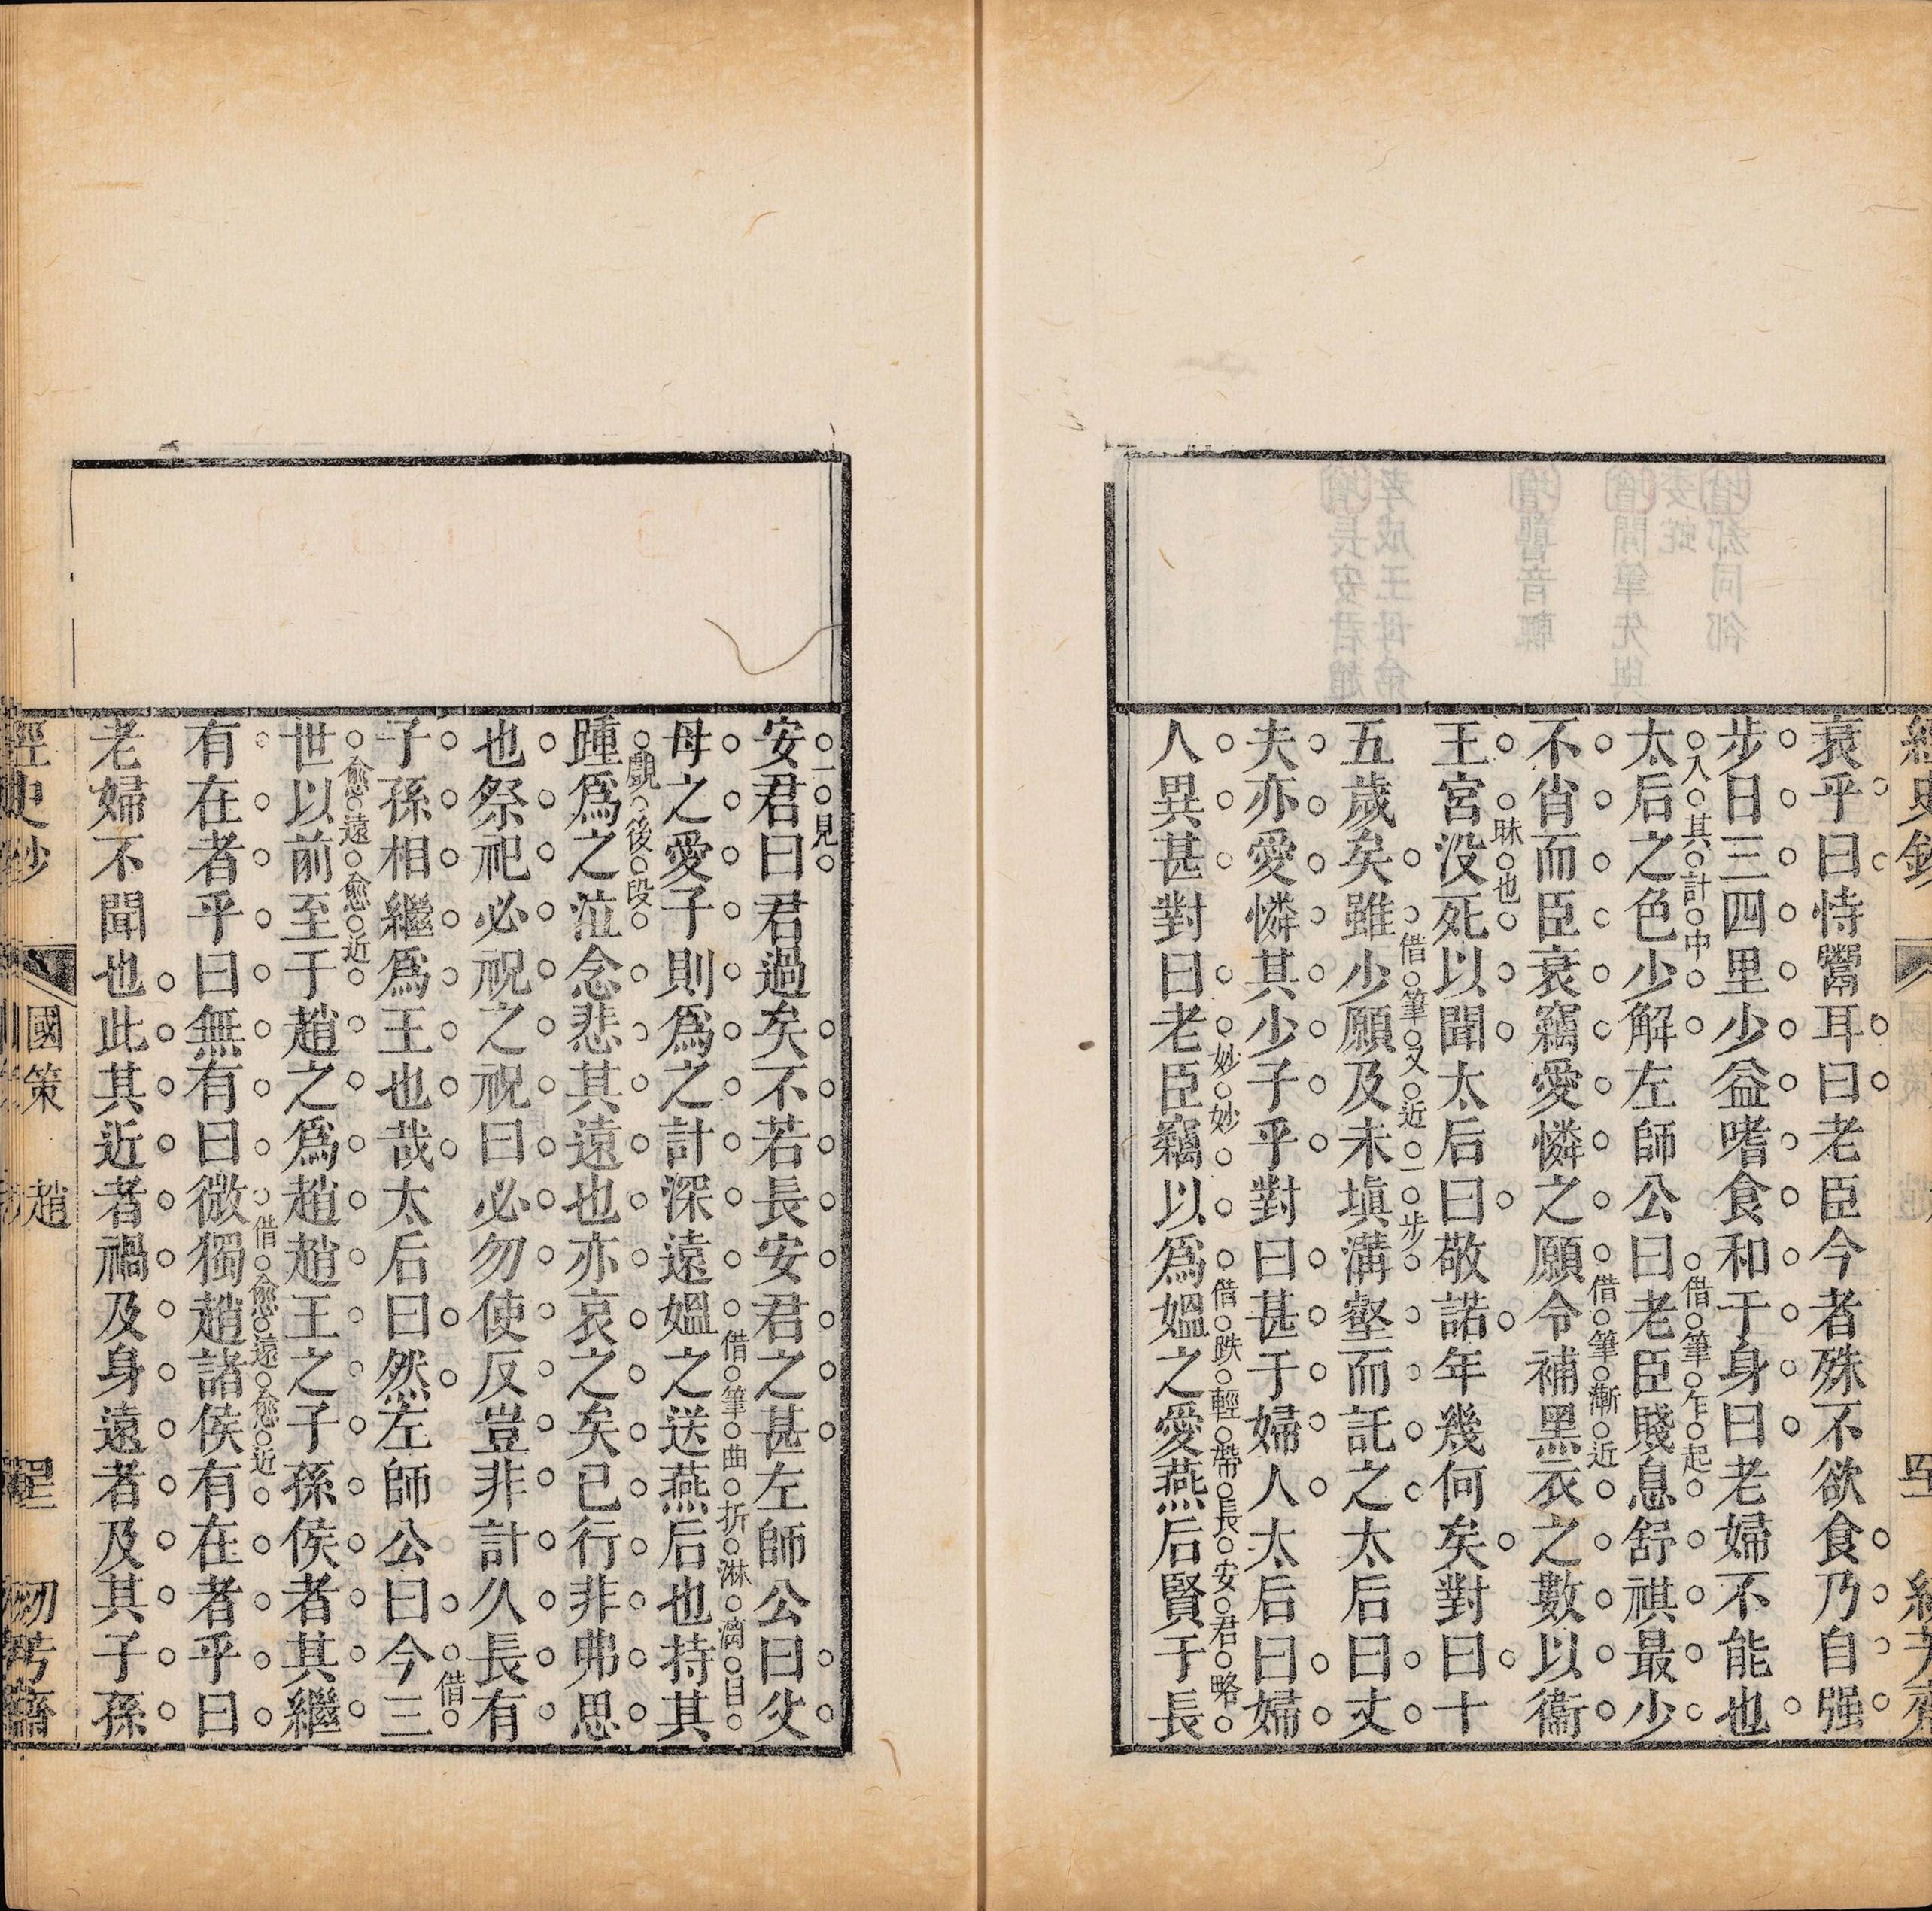 衰乎曰恃鬻耳曰老臣今者殊不欲食乃自强
步日三四里少益嗜食和于身曰老婦不能也
太后之色少解左師公曰老臣賤息舒祺最少
入其計中
借筆乍起
不肖而臣衰竊愛憐之願令補黑衣之數以衞
借筆漸近
王宮没死以聞太后曰敬諾年幾何矣對曰十
昧也
五歲矣雖少願及未塡溝壑而託之太后曰丈
借筆又近一步
夫亦愛憐其少子乎對曰甚于婦人太后曰婦
人異甚對曰老臣竊以爲媼之愛燕后賢于長
妙妙
借跌輕帶長安君略
安君曰君過矣不若長安君之甚左師公曰父
一見
母之愛子則爲之計深遠媼之送燕后也持其
借筆曲折淋漓目
踵爲之泣念悲其遠也亦哀之矣已行非弗思
覰後段
也祭祀必祝之祝曰必勿使反豈非計久長有
子孫相繼爲王也哉太后曰然左師公曰今三
借
世以前至于趙之爲趙趙王之子孫侯者其繼
愈遠愈近
有在者乎曰無有曰微獨趙諸侯有在者乎曰
借愈遠愈近
老婦不聞也此其近者禍及身遠者及其子孫
經史鈔
國策
趙